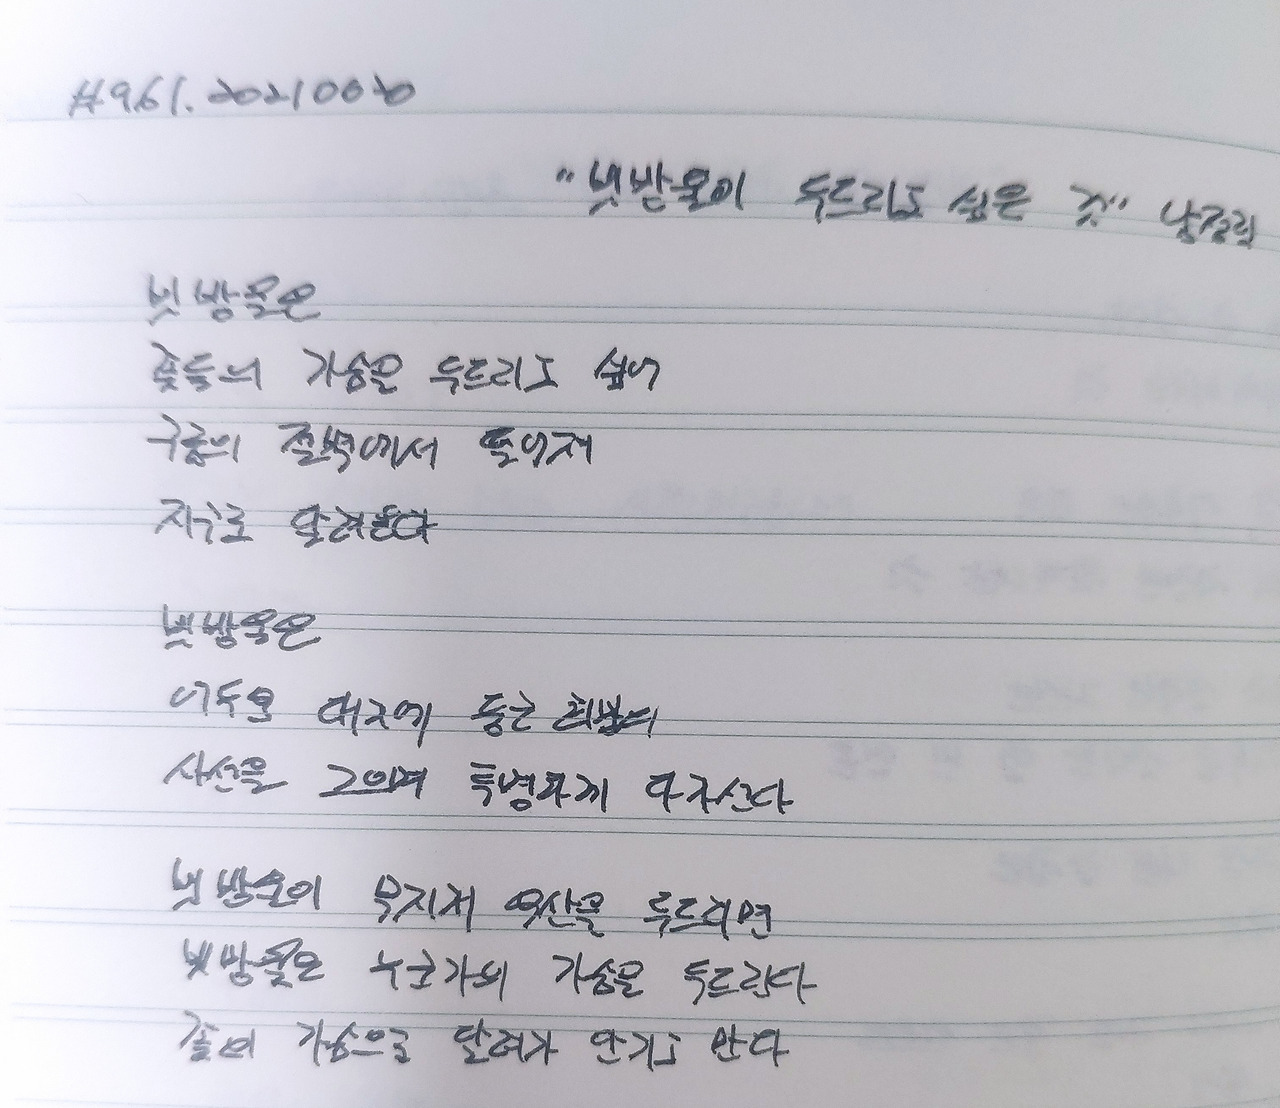 #961. 20210020
"빗방울이 두드리고 싶은 것" 남정림
빗방울은
꽃들의 가슴을 두드리고 싶어
구름의 절벽에서 떨어져
지구로 달려온다
빗방울은
어두운 대지에 둥근 희망의
사선을 그으며 투명하게 다가선다
빗방울이 무지개 우산을 두드리면
빗방울은 누군가의 가슴을 두드린다
꽃의 가슴으로 달려가 안기고 만다